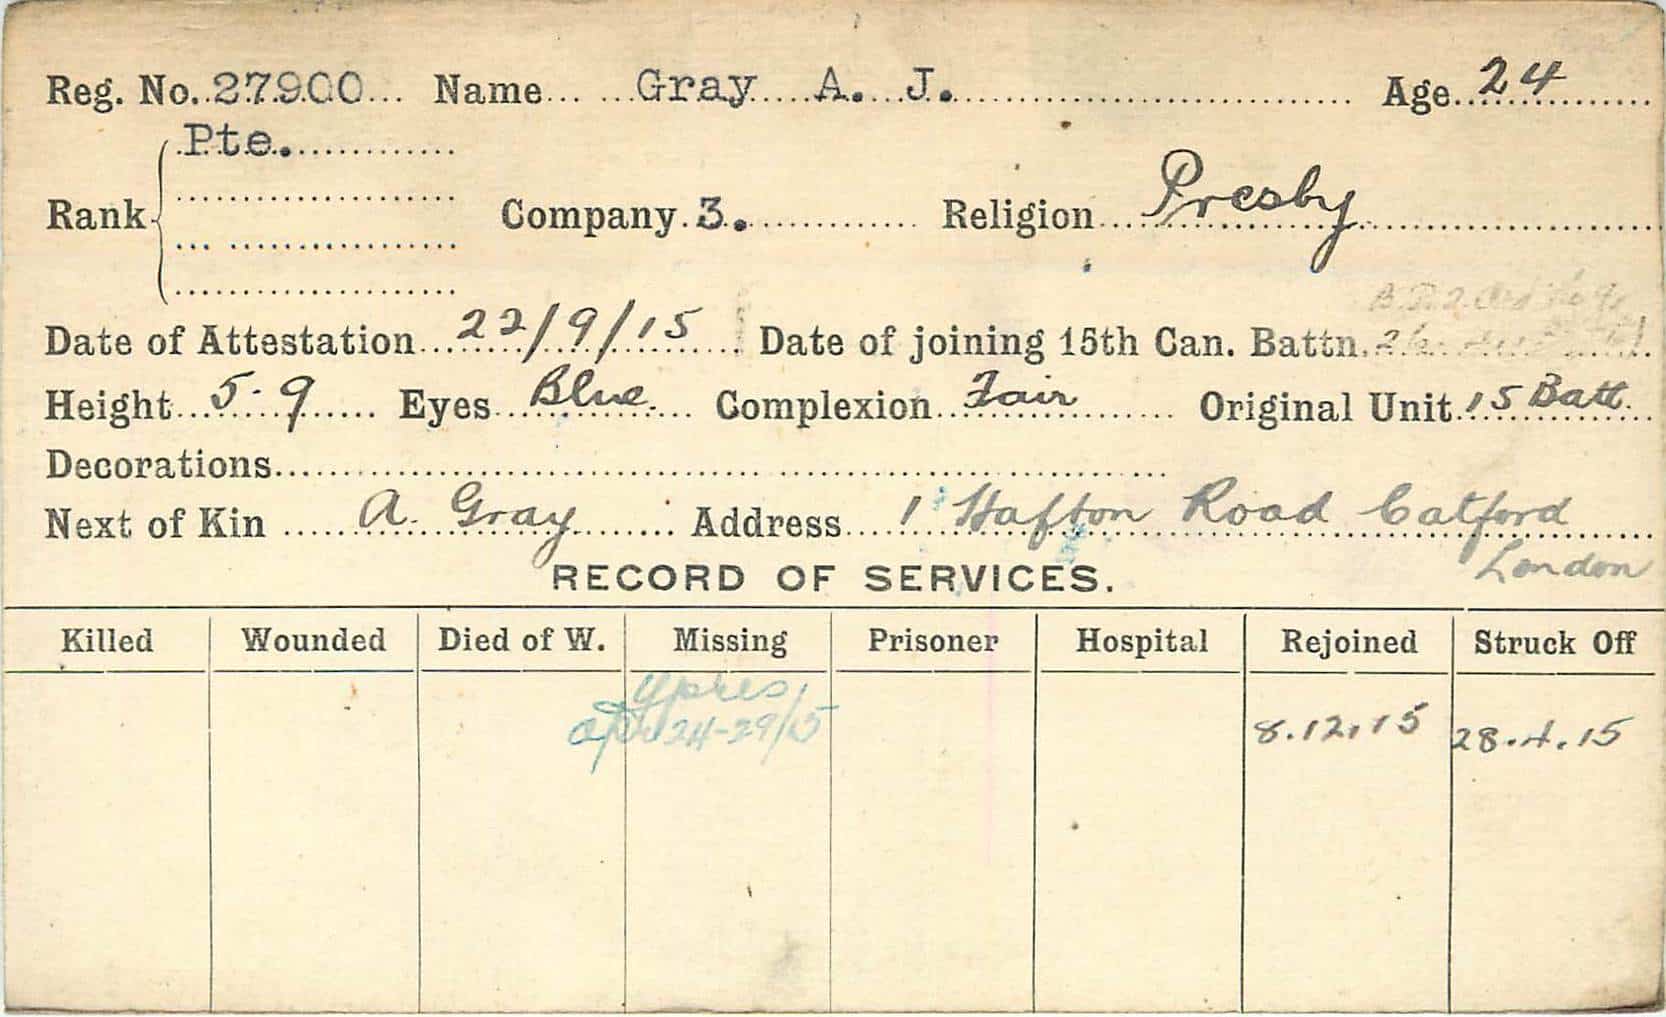 Reg. No. 27900 Name Gray A. J. Age 24
Pte.
Rank Company 3. Religion Presby
Date of Attestation 22/9/15 Date of joining 15th Can. Battn.
Height 5-9 Eyes Blue Complexion Fair Original Unit 15 Batt
Decorations
Next of Kin A. Gray Address 1 Hafton Road Catford
London
RECORD OF SERVICES.
Killed Wounded Died of W. Missing Prisoner Hospital Rejoined Struck Off
Ypres
Apr 24-29/15 8.12.15 28.4.15